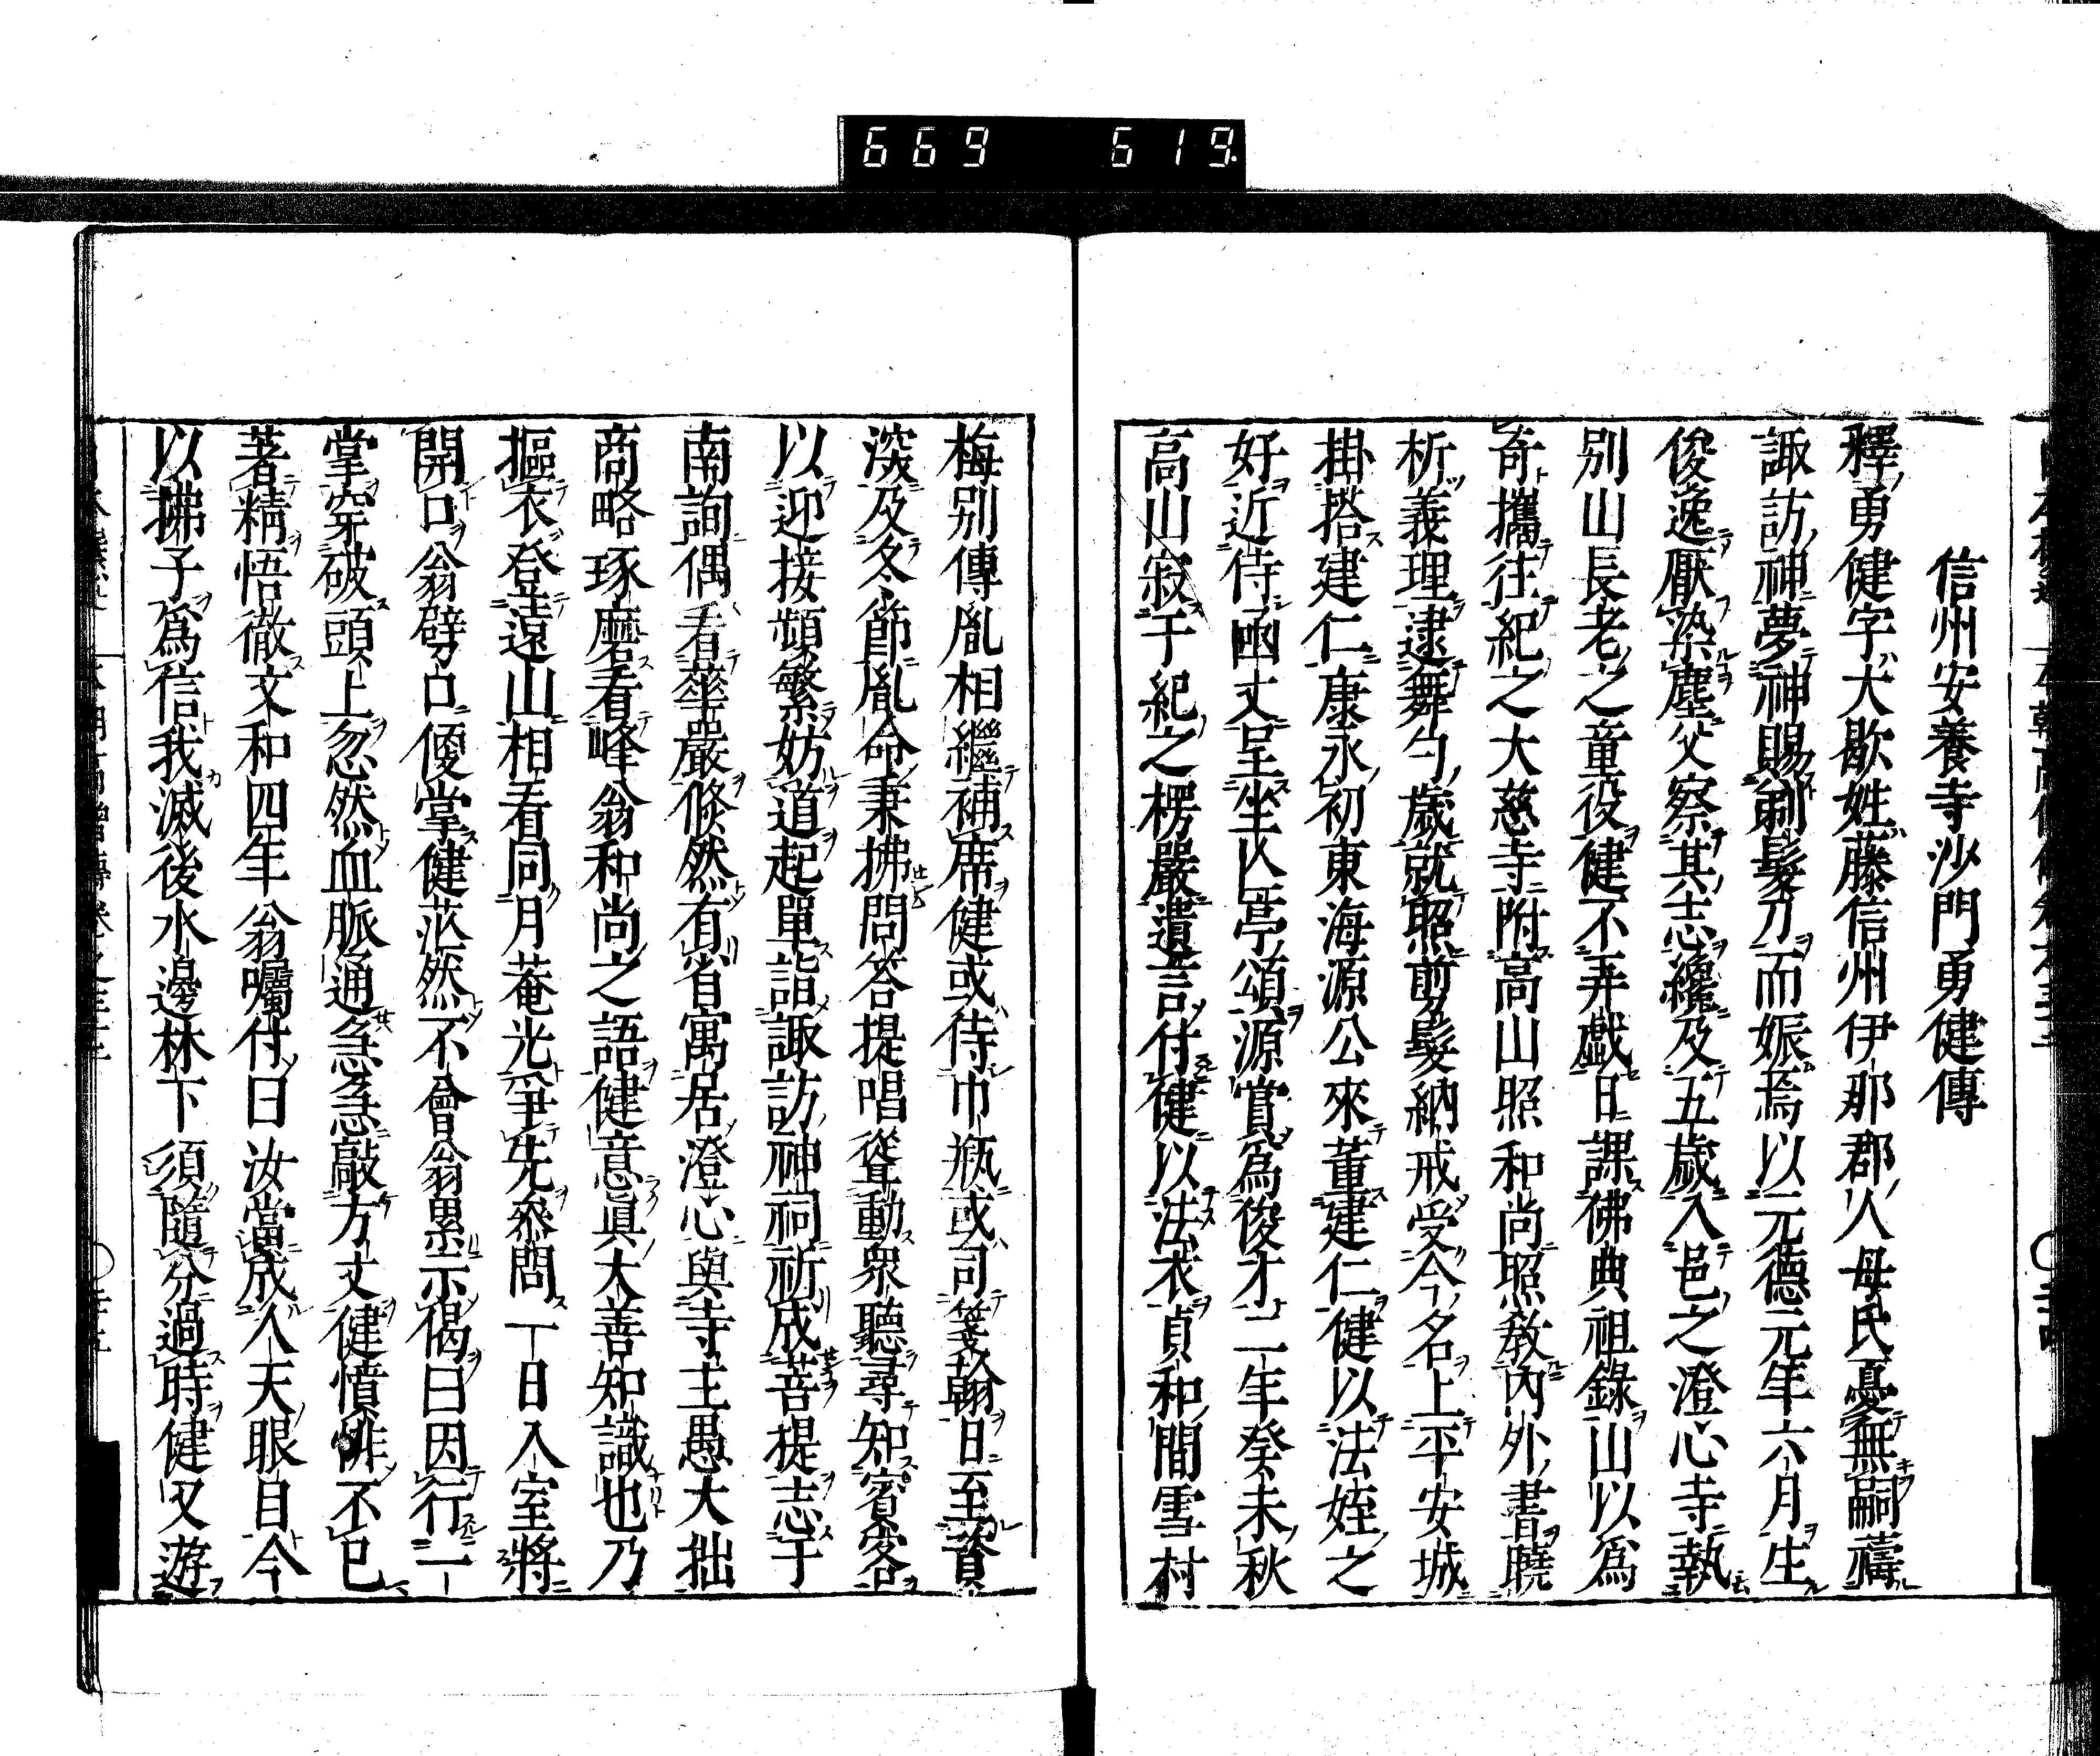 669 619.
信州安養寺沙門勇健傳
釋勇健字大歇姓藤信州伊那郡人母氏憂無嗣禱
諏訪神夢神賜剃髮刀而娠焉以元德元年六月生
俊逸厭染塵父察其志纔及五歲入邑之澄心寺執
別山長老之童役健不弄戲日課佛典祖錄山以爲
奇攜往紀之大慈寺附高山照和尚照教內外書曉
析義理逮舞勺歲就照剪髮納戒受今名上平安城
掛搭建仁康永初東海源公來董建仁健以法姪之
好近侍函丈呈坐亾亭頌源賞爲俊才二年癸未秋
高山寂于紀之楞嚴遺言付健以法衣貞和間雪村
梅別傳胤相繼補席健或侍巾瓶或司箋翰日至資
深及冬節胤命秉拂問答提唱聳動眾聽尋知賓客
以迎接頻繁妨道起單詣諏訪神祠祈成菩提志于
南詢偶看華嚴倐然有省寓居澄心與寺主愚大拙
商略琢磨看峰翁和尚之語健意眞大善知識也乃
摳衣登遠山相看同月菴光爭先參問一日入室將
開口翁劈口便掌健茫然不會翁累示偈曰因行一
掌穿破頭上忽然血脈通急急敲方丈健憤悱不已
著精悟徹文和四年翁囑付曰汝當成人天眼目今
以拂子爲信我滅後水邊林下須隨分過時健又遊